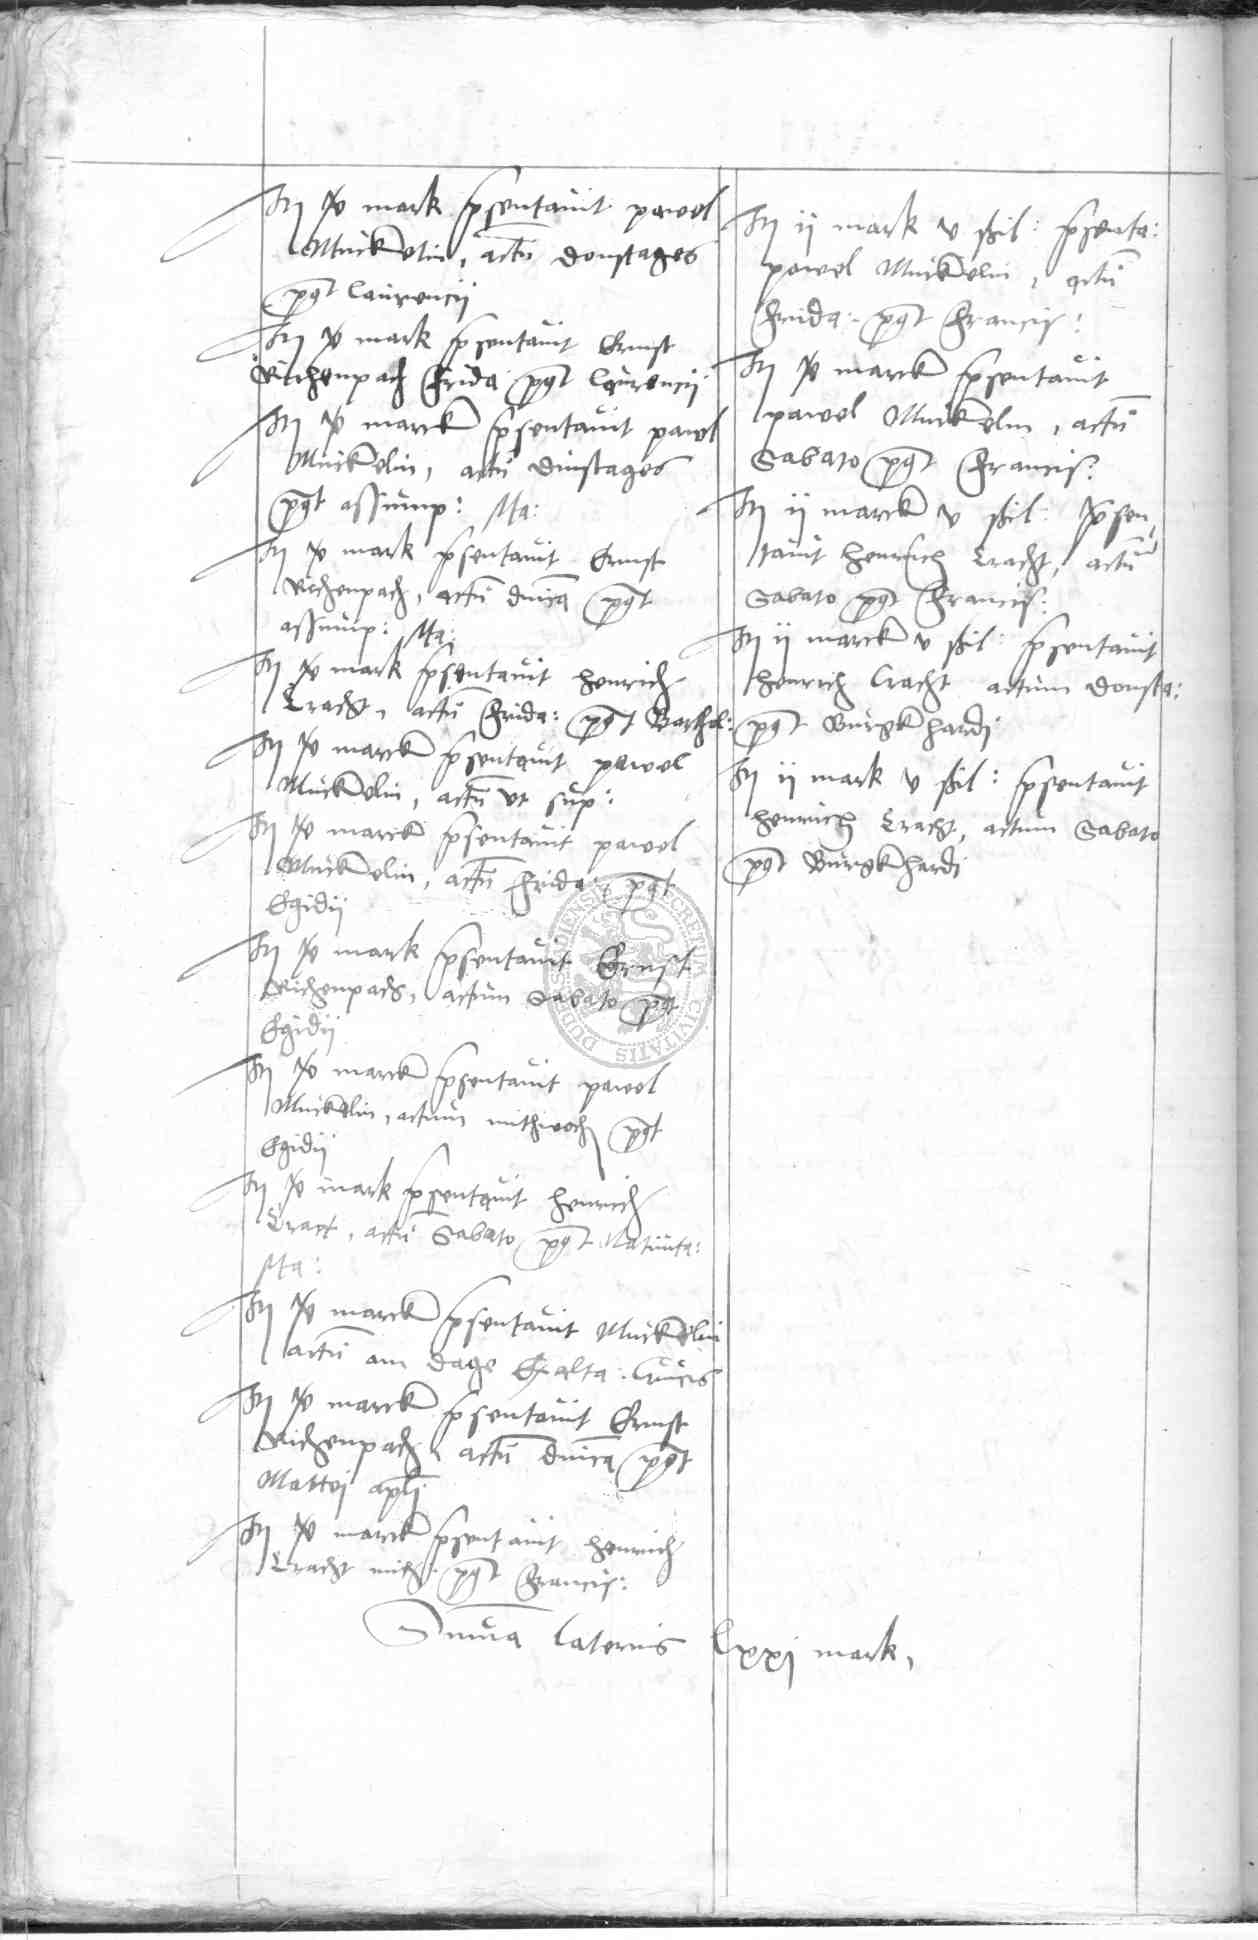 It x mark presentavit pawel
Muckelin, actū donstages
post laurencij
It x mark presentavit Ernst
Richenpach frida post laurencij
It x marck presentavit pawel
Muckelin, actū dinstages
post assump: Ma:
It x mark presentavit Ernst
Richenpach, actū dnica post
assump: Ma:
It x mark presentavit henrich
Cracht, actū frida: post Barthol:
It x marck presentavit pawel
Muckelin, actū ut sup:
It x marck presentavit pawel
Muckelin, actū frida: post
Egidij
It x mark presentavit Ernst
Richenpach, actum Sabato post
Egidij
It x marck presentavit pawel
Muckelin, actum mithwoch post
Egidij
It x mark presentavit henrich
Cract, actū Sabato post Nativita:
Ma:
It x marck presentavit Muckelin
actū am dage Exalta: Crucis
It x marck presentavit Ernst
Richenpach, actū dnica post
Mattei apli
It x marck presentavit henrich
Cracht mith: post Francis:
It ii mark v ßil: presenta:
pawel Muckelin, actū
frida: post Francis:
It x marck presentavit
pawel Muckelin, actū
Sabato post Francis:
It ii marck v ßil: presen,
tavit henrich Cracht, actū
Sabato post Francis:
It ii marck v ßil: presentavit
henrich Cracht actum donsta:
post Burgkhardi
It ii mark v ßil: presentavit
henrich Cracht, actum Sabato
post Burgkhardi
Suma lateris lxxj mark,
SECRETUM CIVITATIS DUDERSTADIENSIS